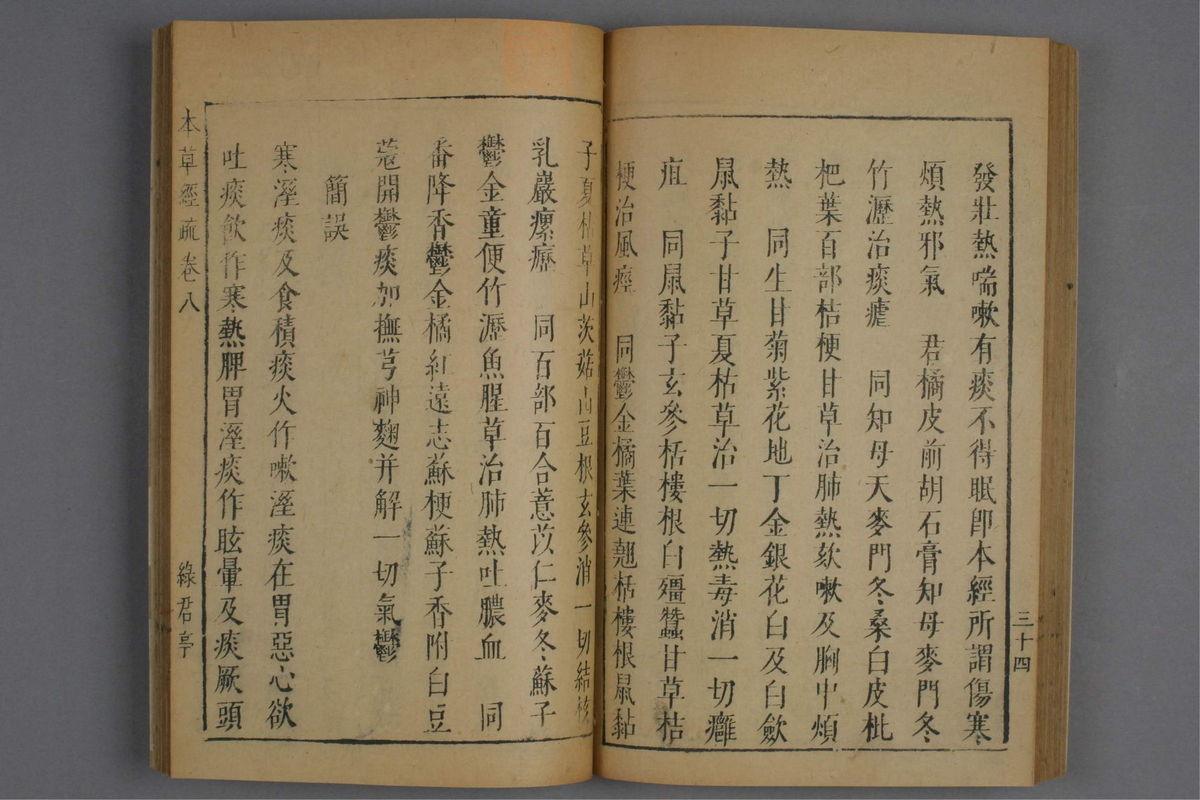 三十四
發壯熱喘嗽有痰不得眠卽本經所謂傷寒
煩熱邪氣　君橘皮前胡石膏知母麥門冬
竹瀝治痰瘧　同知母天麥門冬桑白皮枇
杷葉百部桔梗甘草治肺熱欬嗽及胸中煩
熱　同生甘菊紫花地丁金銀花白及白斂
鼠黏子甘草夏枯草治一切熱毒消一切癰
疽　同鼠黏子玄參栝樓根白殭蠶甘草桔
梗治風痙　同鬱金橘葉連翹栝樓根鼠黏
子夏枯草山茨菇山豆根玄參消一切結核
乳巖瘰癧　同百部百合薏苡仁麥冬蘇子
鬱金童便竹瀝魚腥草治肺熱吐膿血　同
番降香鬱金橘紅遠志蘇梗蘇子香附白豆
蔻開鬱痰加撫芎神麴并解一切氣鬱
簡誤
寒溼痰及食積痰火作嗽溼痰在胃惡心欲
吐痰飲作寒熱脾胃溼痰作眩暈及痰厥頭
本草經疏卷八
綠君亭